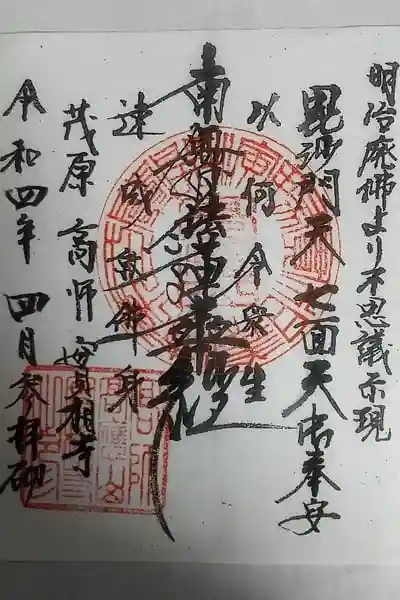 明治廃佛より不思議示現
毘沙門天 七面天 御奉安
以何令衆生
南無妙法蓮華経
速成就佛身
茂原 高師 實相寺
令和四年 四月参拝